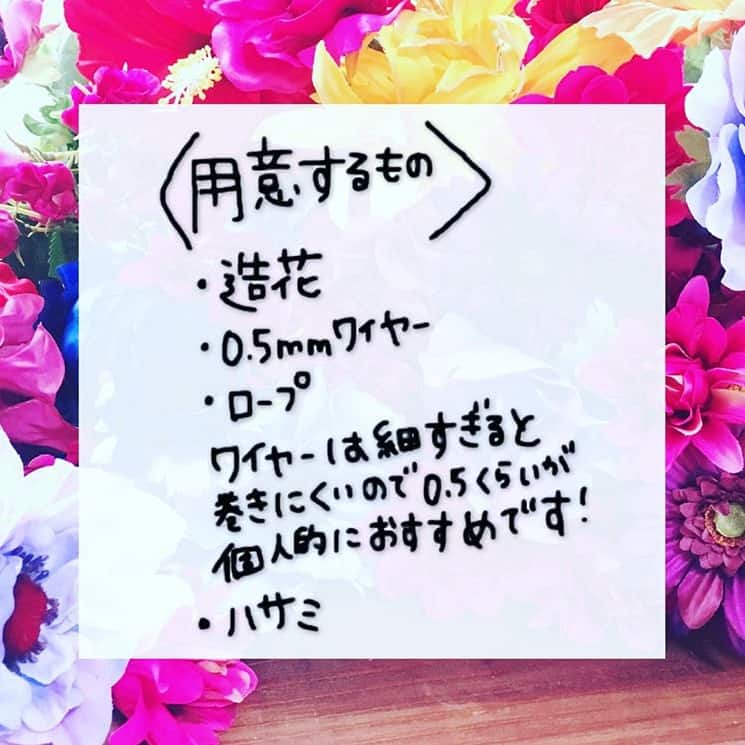 〈用意するもの〉
・造花
・0.5mmワイヤー
・ロープ
ワイヤーは細すぎると
巻きにくいので0.5くらいが
個人的におすすめです!
・ハサミ